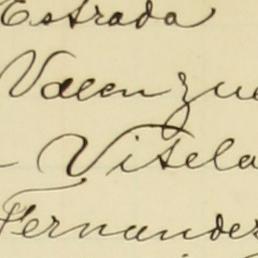 Estrada
Valenzue
Visela
Fernandez